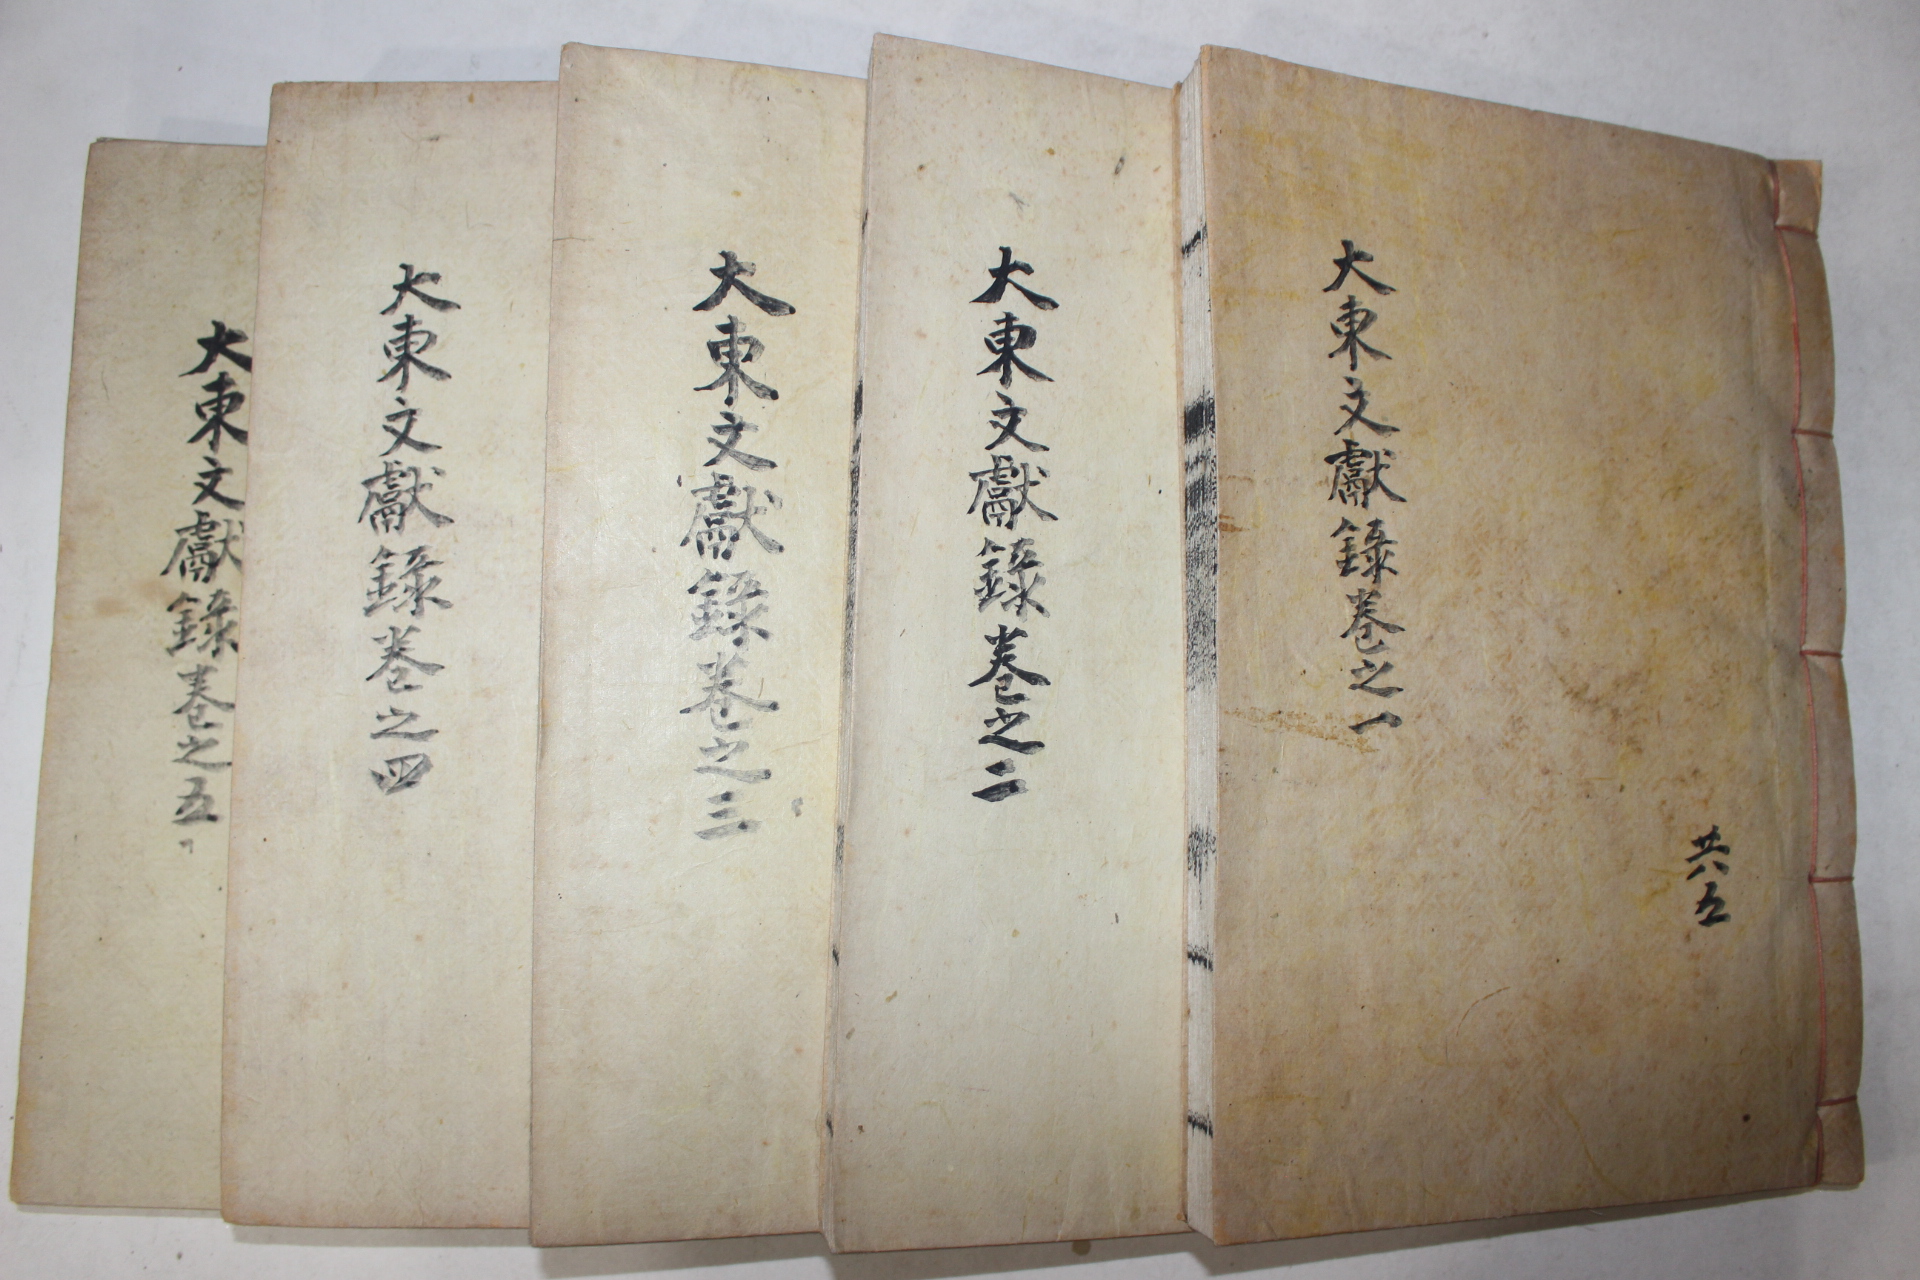 共五
大東文獻錄卷之一
大東文獻錄卷之二
大東文獻錄卷之三
大東文獻錄卷之四
大東文獻錄卷之五